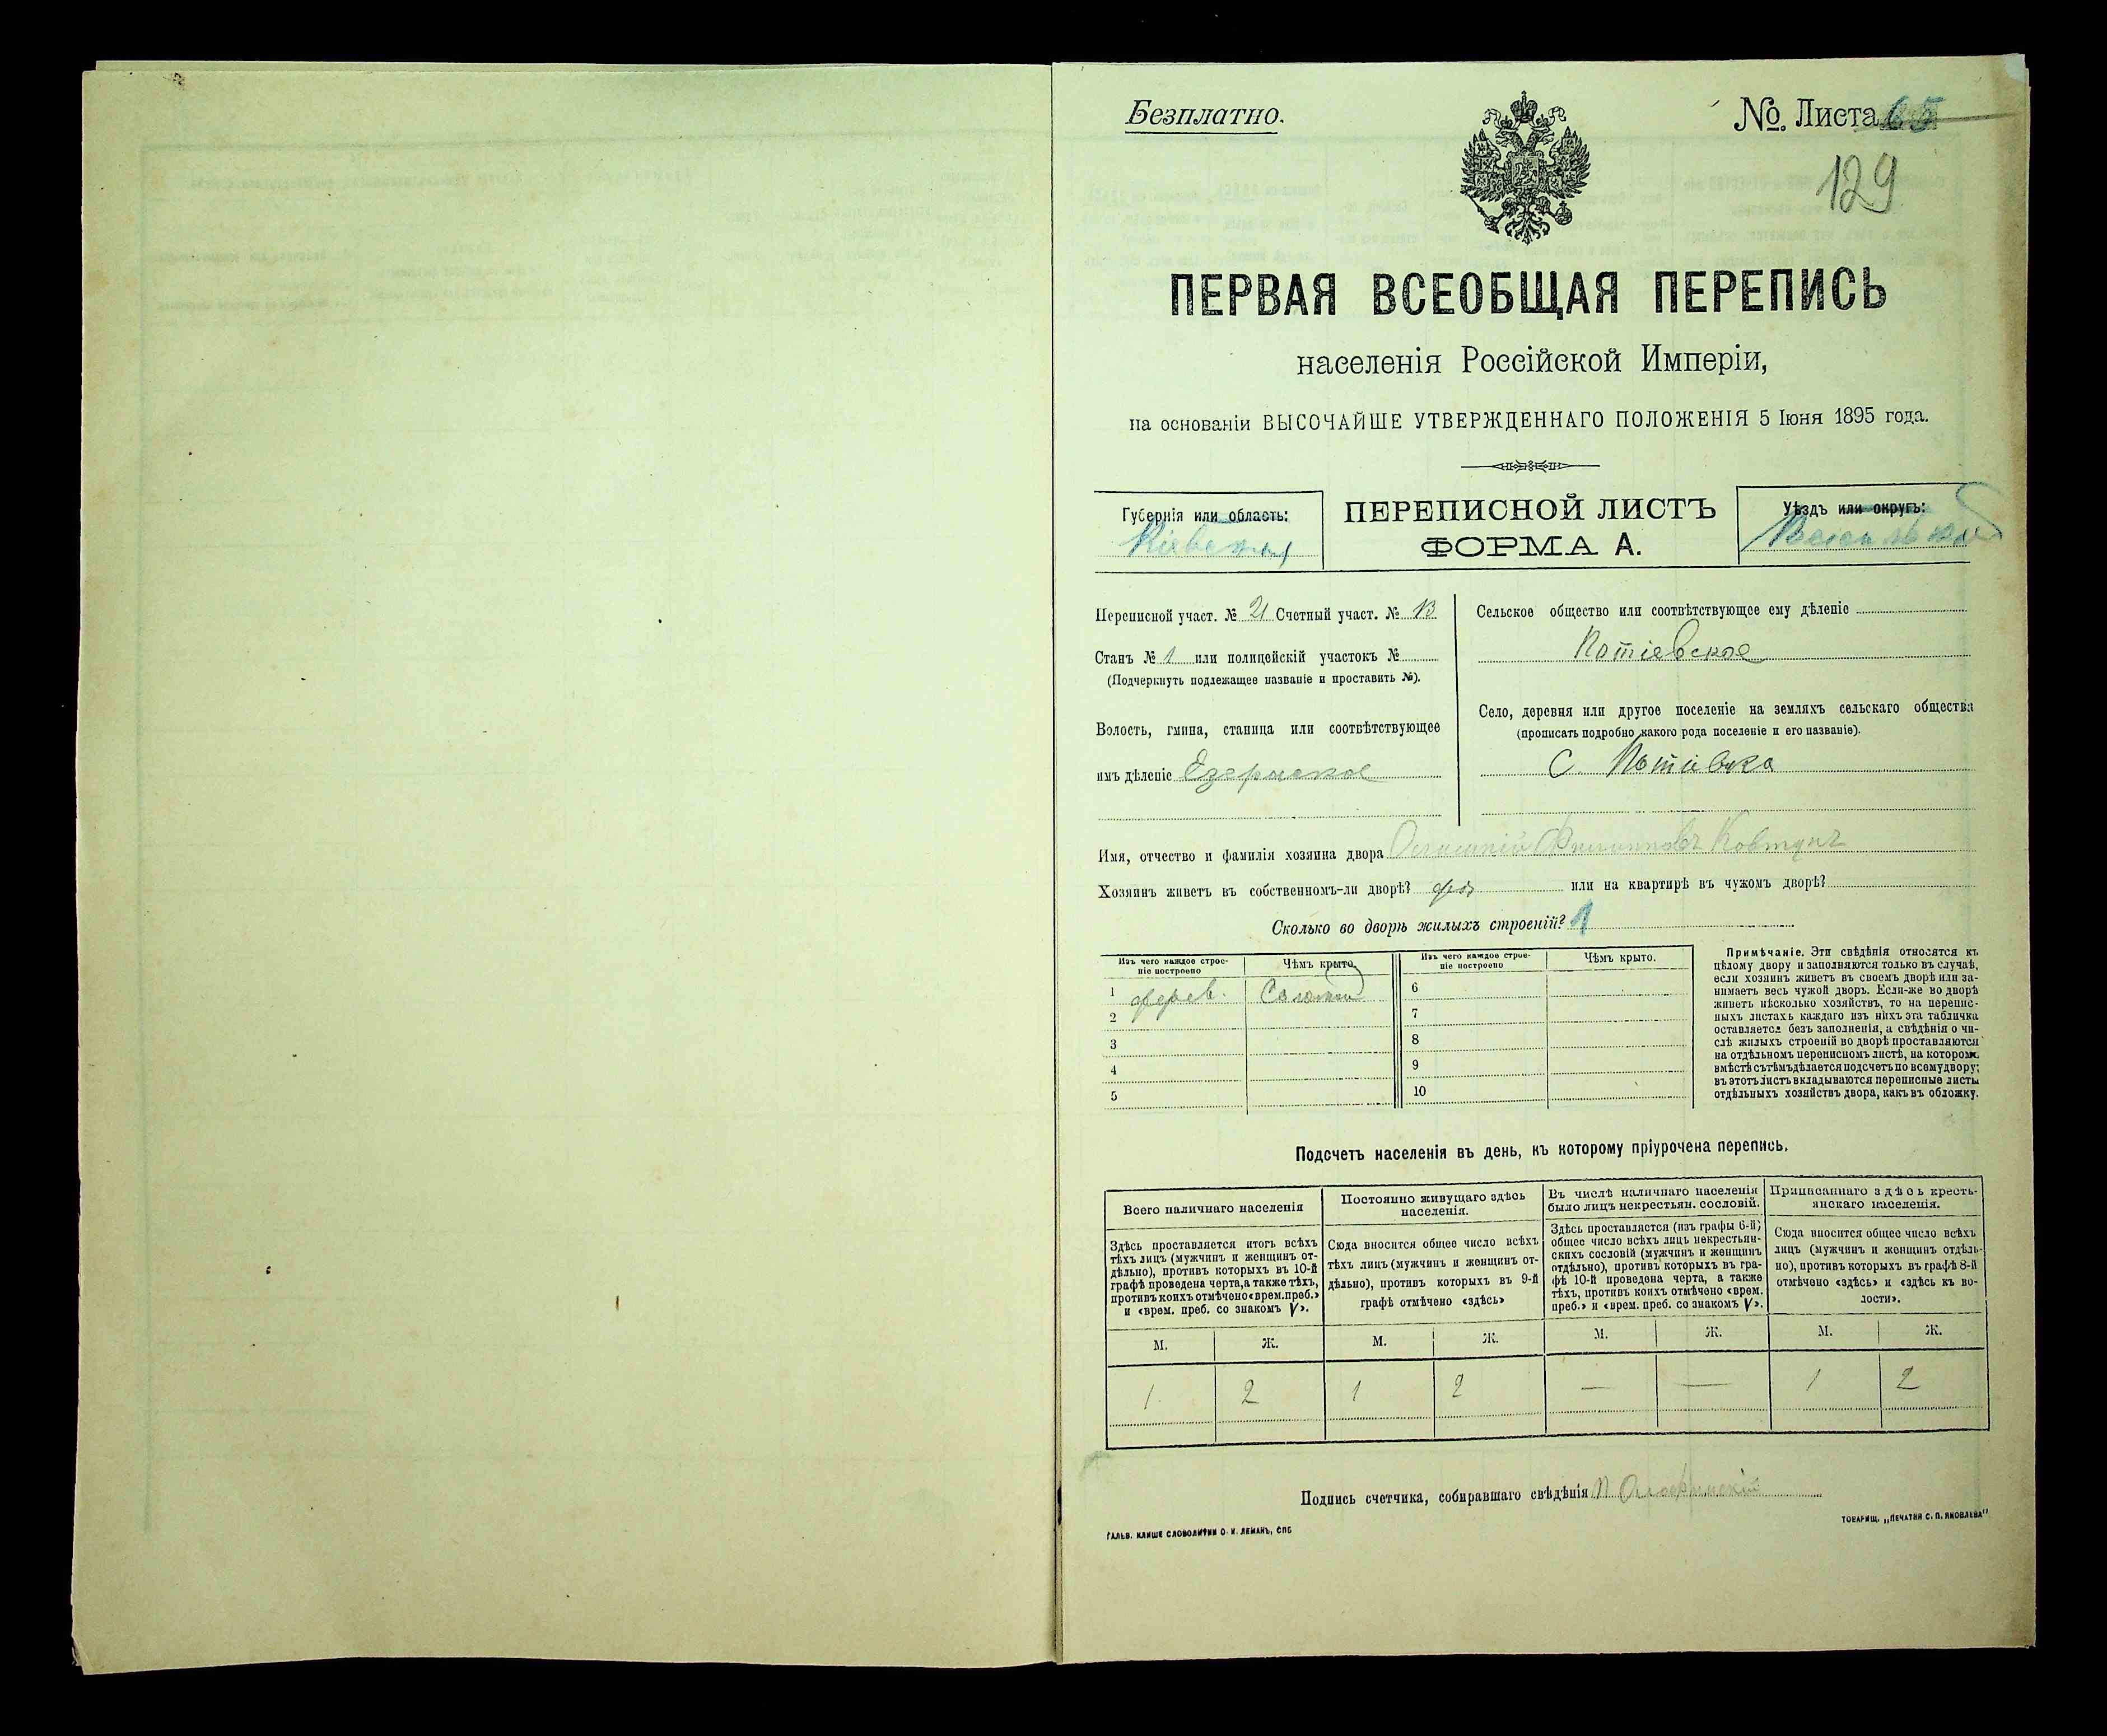 Безплатно.
№ Листа 65
129
ПЕРВАЯ ВСЕОБЩАЯ ПЕРЕПИСЬ
населенія Россійской Имперіи,
на основаніи ВЫСОЧАЙШЕ УТВЕРЖДЕННАГО ПОЛОЖЕНІЯ 5 Іюня 1895 года.
Губернія или область:
Кіевская
ПЕРЕПИСНОЙ ЛИСТЪ
ФОРМА А.
Уѣздъ или округъ:
Васильков
Переписной участ. № 21 Счетный участ. № 13
Станъ № 1 или полицейскій участокъ №
(Подчеркнуть подлежащее названіе и проставить №).
Волость, гмина, станица или соотвѣтствующее
имъ дѣленіе Езерянское
Сельское общество или соотвѣтствующее ему дѣленіе
Потіевское
Село, деревня или другое поселеніе на земляхъ сельскаго общества
(прописать подробно какого рода поселеніе и его названіе).
С. Потіевка
Имя, отчество и фамилія хозяина двора Филипповъ Ковтунъ
Хозяинъ живетъ въ собственномъ-ли дворѣ? или на квартирѣ въ чужомъ дворѣ?
Сколько во дворѣ жилыхъ строеній? 1
Изъ чего каждое строе-
ніе построено
Чѣмъ крыто.
Изъ чего каждое строе-
ніе построено
Чѣмъ крыто.
1 дерев. Соломой
2
3
4
5
6
7
8
9
10
Примѣчаніе. Эти свѣдѣнія относятся къ
цѣлому двору и заполняются только въ случаѣ,
если хозяинъ живетъ въ своемъ дворѣ или за-
нимаетъ весь чужой дворъ. Если-же во дворѣ
живетъ нѣсколько хозяйствъ, то на перепис-
ныхъ листахъ каждаго изъ нихъ эта табличка
оставляется безъ заполненія, а свѣдѣнія о чи-
слѣ жилыхъ строеній во дворѣ проставляются
на отдѣльномъ переписномъ листѣ, на которомъ
вмѣстѣ съ тѣмъ дѣлается подсчетъ по всему двору;
въ этотъ листъ вкладываются переписные листы
отдѣльныхъ хозяйствъ двора, какъ въ обложку.
Подсчетъ населенія въ день, къ которому пріурочена перепись.
Всего наличнаго населенія
Здѣсь проставляется итогъ всѣхъ
тѣхъ лицъ (мужчинъ и женщинъ от-
дѣльно), противъ которыхъ въ 10-й
графѣ проведена черта, а также тѣхъ,
противъ коихъ отмѣчено «врем. преб.»
и «врем. преб. со знакомъ V».
Постоянно живущаго здѣсь
населенія.
Сюда вносится общее число всѣхъ
тѣхъ лицъ (мужчинъ и женщинъ от-
дѣльно), противъ которыхъ въ 9-й
графѣ отмѣчено «здѣсь»
Въ числѣ наличнаго населенія
было лицъ некрестьян. сословій.
Здѣсь проставляется (изъ графы 6-й)
общее число всѣхъ лицъ некрестьян-
скихъ сословій (мужчинъ и женщинъ
отдѣльно), противъ которыхъ въ гра-
фѣ 10-й проведена черта, а также
тѣхъ, противъ коихъ отмѣчено «врем.
преб.» и «врем. преб. со знакомъ V».
Приписаннаго здѣсь кресть-
янскаго населенія.
Сюда вносится общее число всѣхъ
лицъ (мужчинъ и женщинъ отдѣль-
но), противъ которыхъ въ графѣ 8-й
отмѣчено «здѣсь» и «здѣсь къ во-
лости».
М. Ж. М. Ж. М. Ж. М. Ж.
1 2 1 2 — — 1 2
Подпись счетчика, собиравшаго свѣдѣнія
ГАЛЬВ. КЛИШЕ СЛОВОЛИТНИ О. И. ЛЕМАНЪ, СПБ
ТОВАРИЩ. „ПЕЧАТНЯ С. П. ЯКОВЛЕВА"